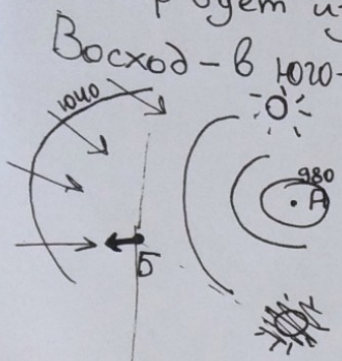 Восход - в юго-
1040
980
А
Б